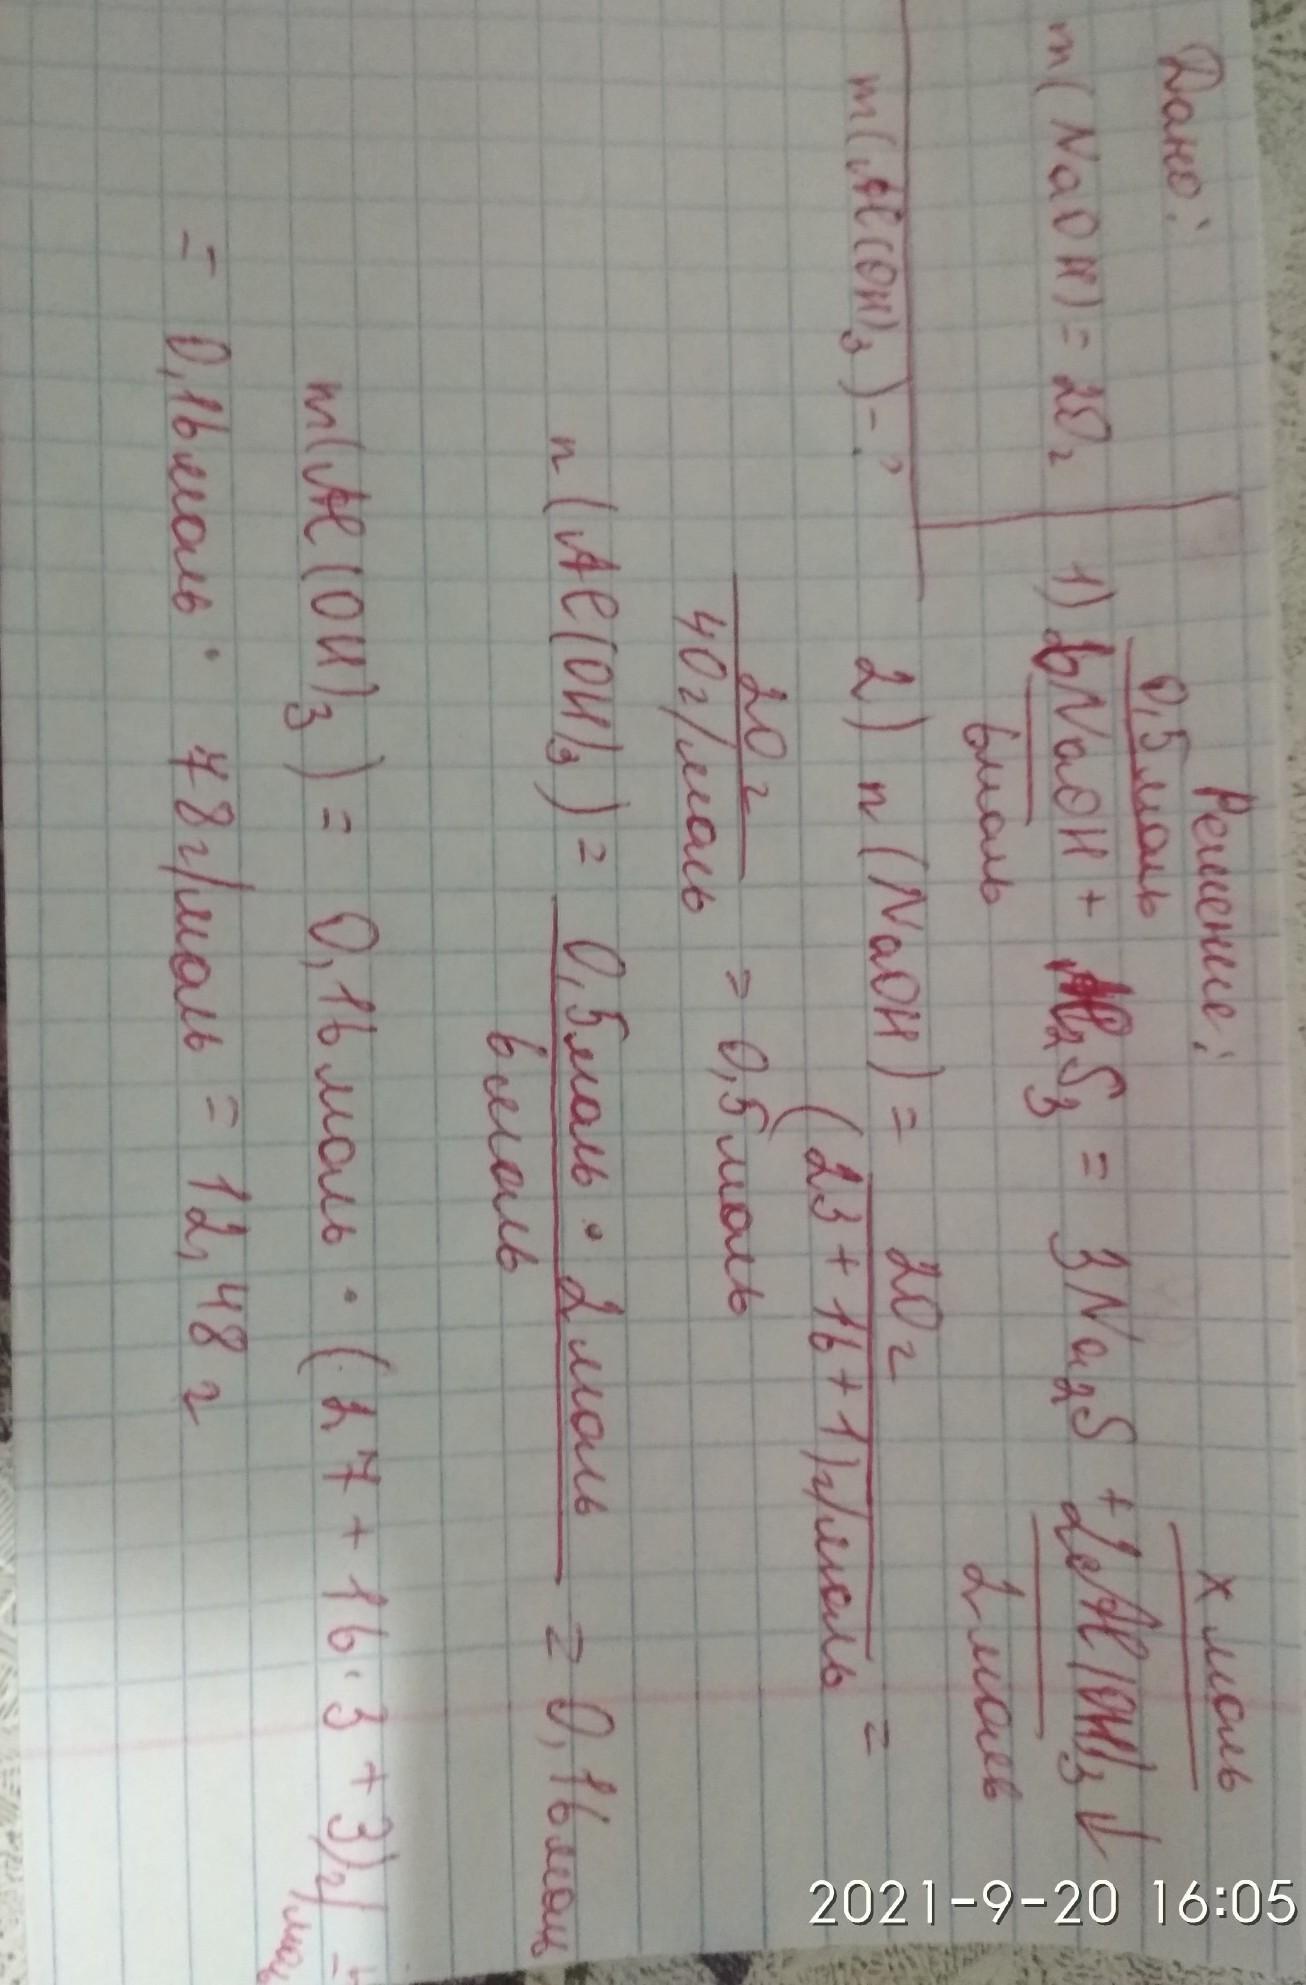 Дано:
Решение:
m(NaOH) = 20г
0,5моль
x моль
1) 6NaOH + Al₂S₃ = 3Na₂S + 2Al(OH)₃↓
6моль
2моль
m(Al(OH)₃) - ?
2) n(NaOH) = 20г / (23 + 16 + 1)г/моль =
20г / 40г/моль = 0,5моль
n(Al(OH)₃) = 0,5моль · 2моль / 6моль = 0,16моль
m(Al(OH)₃) = 0,16моль · (27 + 16·3 + 3)г/моль =
= 0,16моль · 78г/моль = 12,48г
2021-9-20 16:05